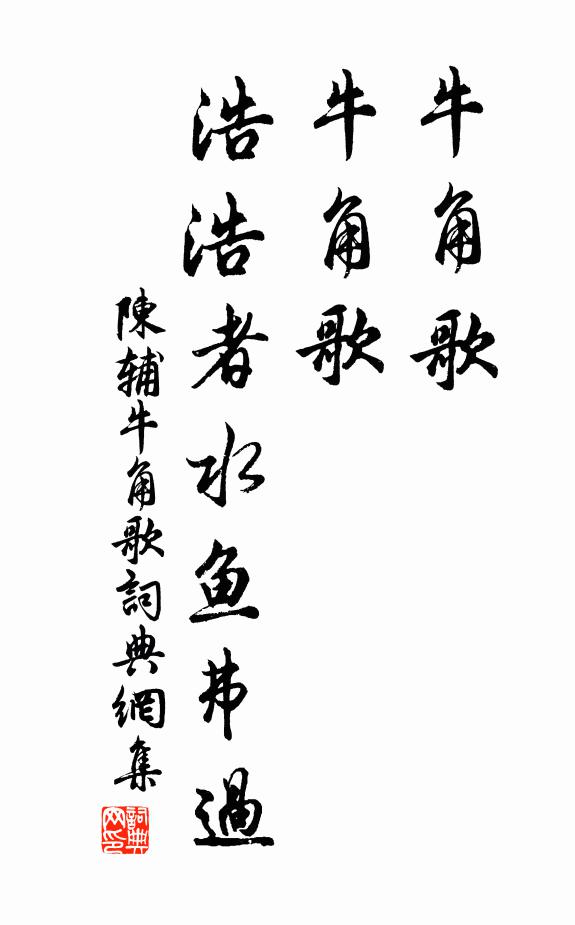 牛角歌
牛角歌
浩浩者水鱼弗過
陳辅牛角歌詞典網集
詞典